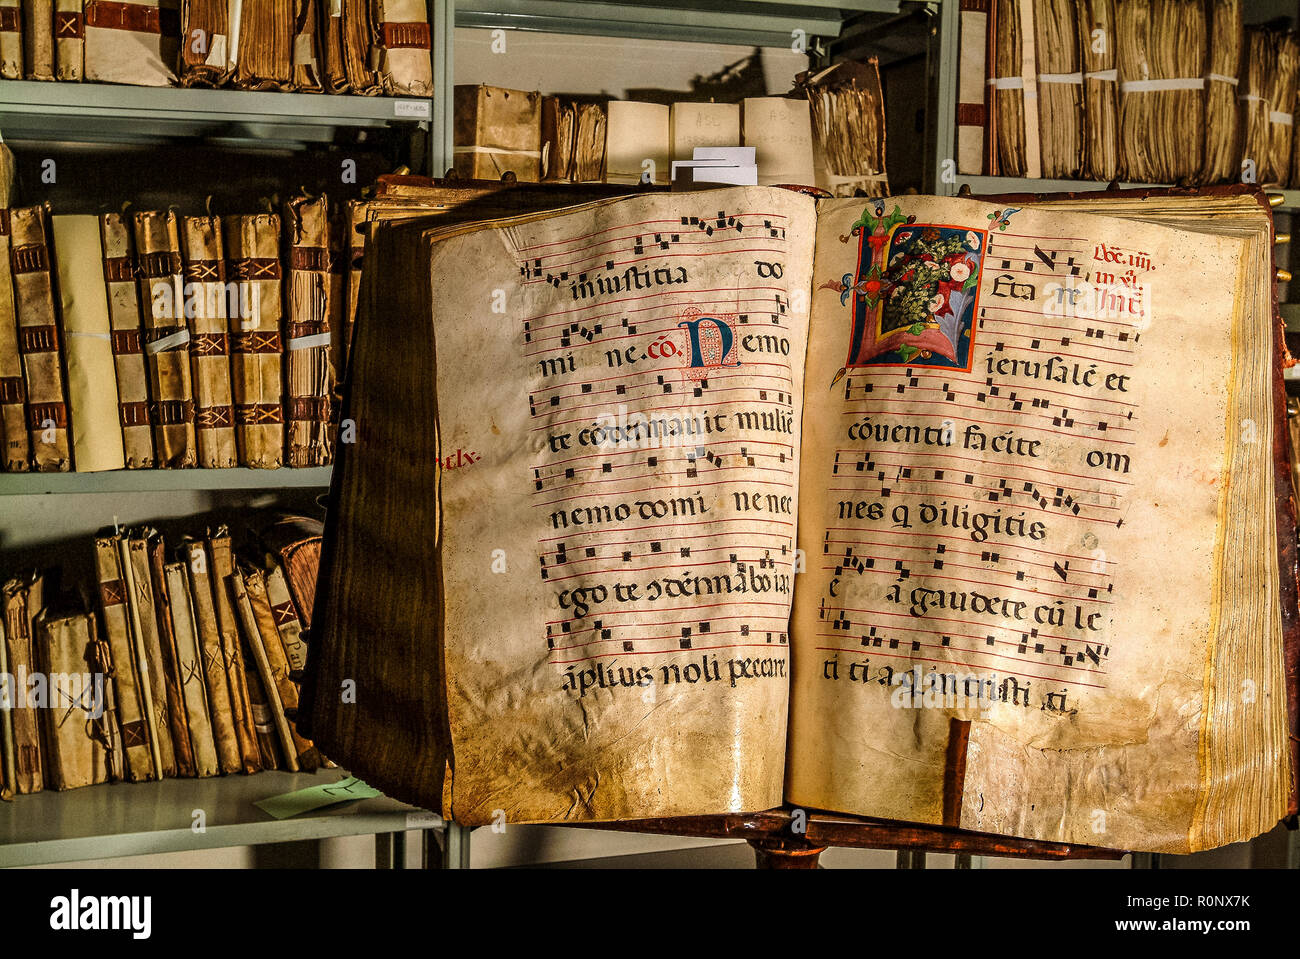 iniustitia do
mi ne. cō. Nemo
te cōdemnauit muliē
nemo domi ne nec
ego te ɔdēnabo iaʒ
āplius noli peccare.
clx.
Dōc. iiii.
in xl.
Int̄.
Eta re
ierusalē et
cōuentū facite om
nes q diligitis
e ā gaudete cū le
ti ti a q in tristi ti
alamy
Image ID: R0NX7K
www.alamy.com